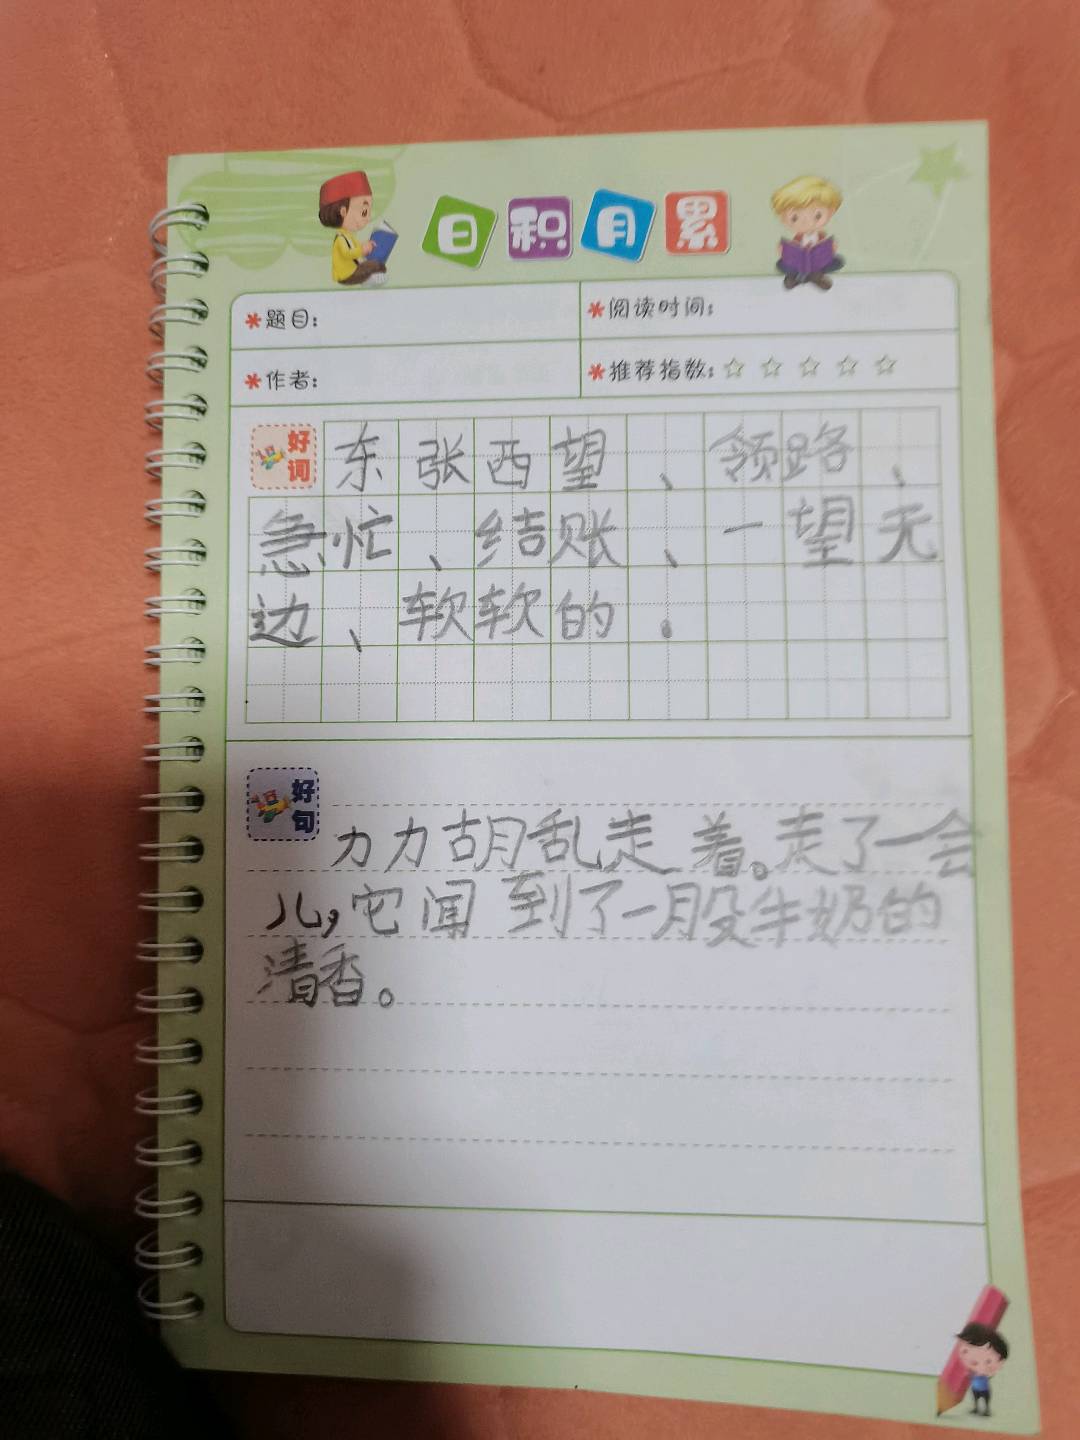 日积月累
*题目: *阅读时间:
*作者: *推荐指数:☆☆☆☆☆
好词 东张西望、领路、
急忙、结账、一望无
边、软软的。
好句
力力胡乱走着。走了一会
儿,它闻到了一股牛奶的
清香。